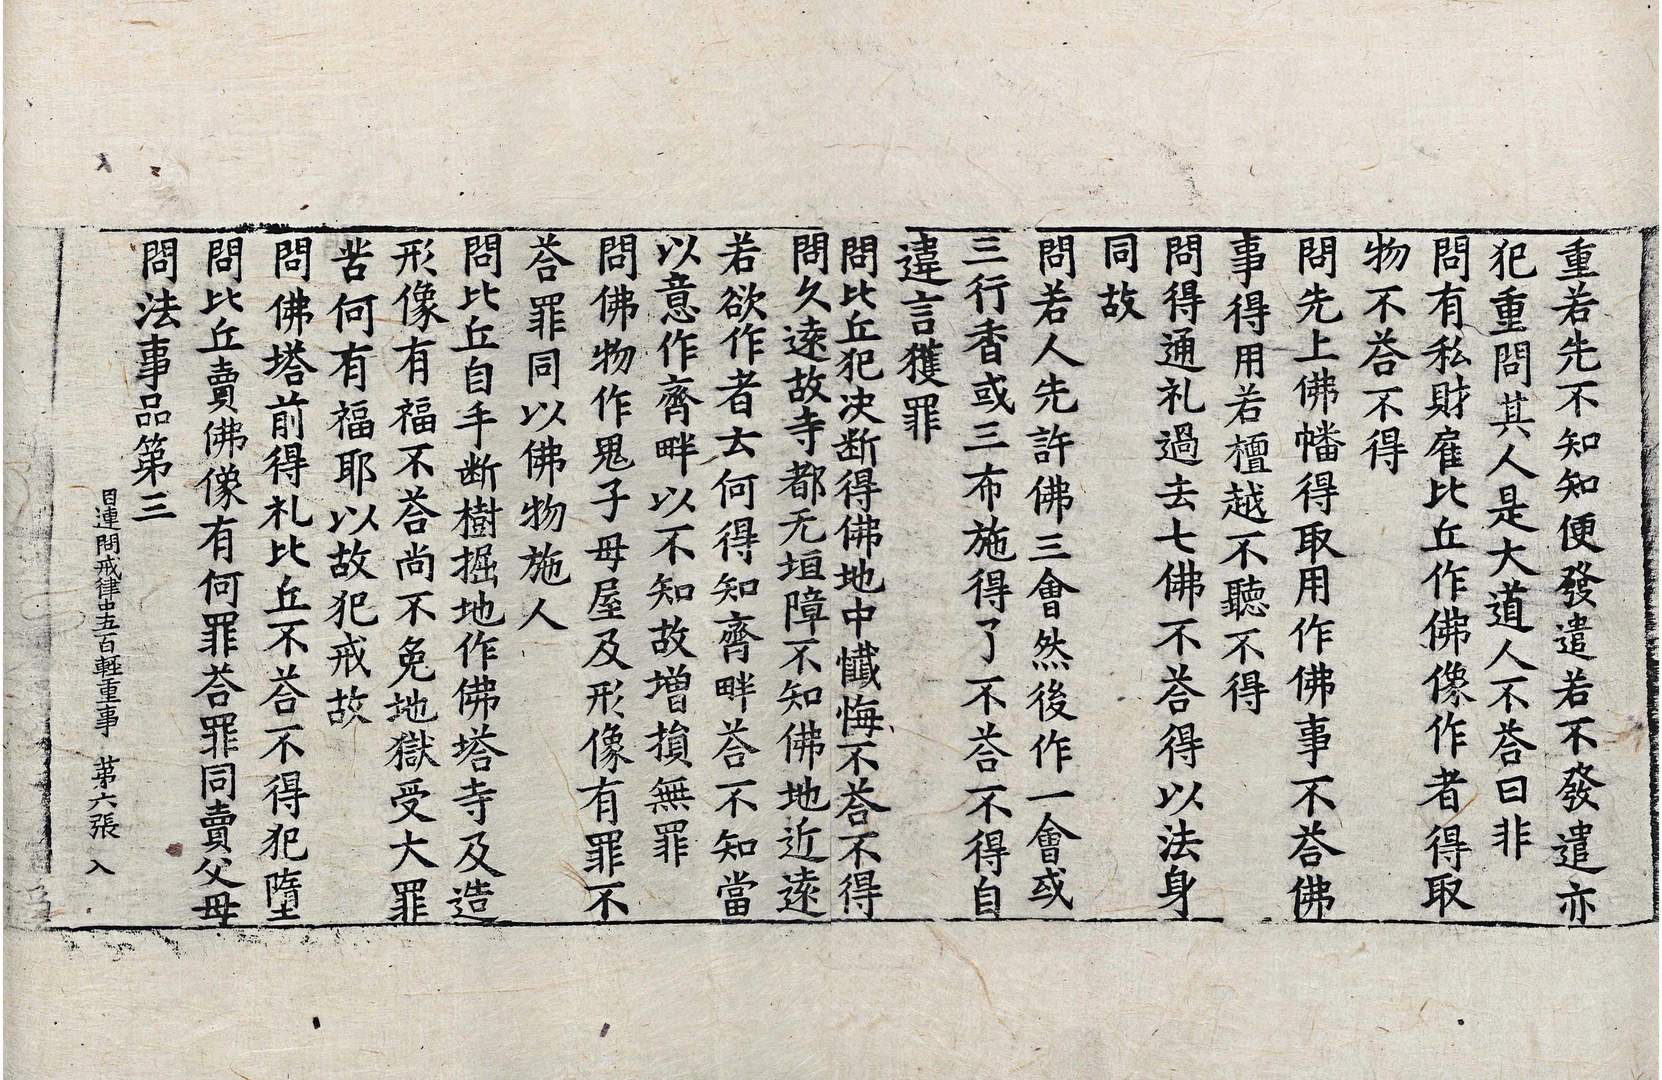 重若先不知知便發遣若不發遣亦
犯重問其人是大道人不荅曰非
問有私財雇比丘作佛像作者得取
物不荅不得
問先上佛幡得取用作佛事不荅佛
事得用若檀越不聽不得
問得通礼過去七佛不荅得以法身
同故
問若人先許佛三會然後作一會或
三行香或三布施得了不荅不得自
違言獲罪
問比丘犯决断得佛地中懺悔不荅不得
問久遠故寺都无垣障不知佛地近遠
若欲作者去何得知齊畔荅不知當
以意作齊畔以不知故增損無罪
問佛物作鬼子母屋及形像有罪不
荅罪同以佛物施人
問比丘自手断樹掘地作佛塔寺及造
形像有福不荅尚不免地獄受大罪
苦何有福耶以故犯戒故
問佛塔前得礼比丘不荅不得犯墮
問比丘賣佛像有何罪荅罪同賣父母
問法事品第三
目連問戒律中五百輕重事　第六張　入